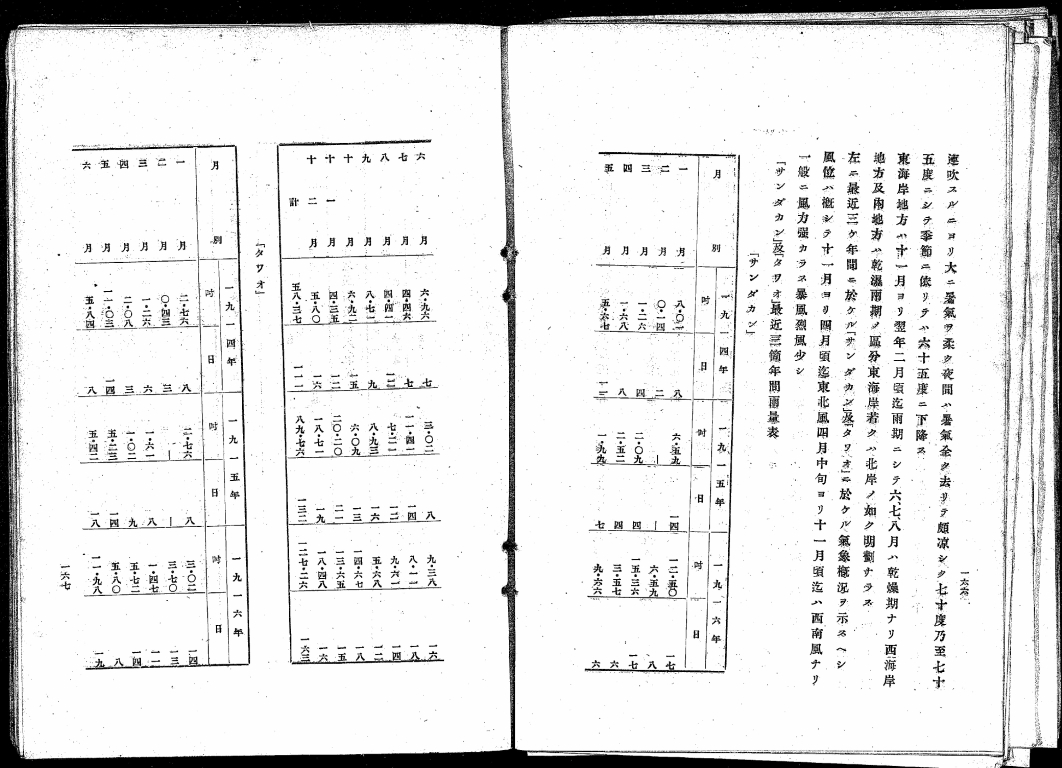 連吹スルニヨリ大ニ暑氣ヲ柔ク夜間ハ暑氣全ク去リテ頗凉シク七十度乃至七十
五度ニシテ季節ニ依リテハ六十五度ニ下降ス
東海岸地方ハ十一月ヨリ翌年二月頃迄雨期ニシテ六七八月ハ乾燥期ナリ西海岸
地方及內地方ハ乾濕雨期ノ區分東海岸若クハ北岸ノ如ク明劃ナラス
左ニ最近三ケ年間ニ於ケル「サンダカン」及「タワオ」ニ於ケル氣象槪況ヲ示スヘシ
風位ハ槪シテ十一月ヨリ四月頃迄東北風四月中旬ヨリ十一月頃迄ハ西南風ナリ
一般ニ風力强カラス暴風烈風少シ
「サンダカン」及「タワオ」最近三箇年間雨量表
「サンダカン」
月別 一九一四年 一九一五年 一九一六年
吋 日 吋 日 吋 日
一月 八・〇一 八 六・五九 一四 一二・五〇 一七
二月 〇・一四 二 ― ― 六・五九 八
三月 一・二六 四 二・〇九 四 五・三六 一七
四月 一・六八 八 二・五二 四 三・五七 六
五月 五・六七 一・九九 七 九・六六 六
一六六
六月 六・九六 七 三・〇二 八 九・三八 一六
七月 四・四六 七 一一・四一 一四 八・一一 一八
八月 四・四一 七・二一 一二 九・六一 一四
九月 八・七一 九 八・九三 一六 五・六八 一二
十月 六・九二 一五 六・〇九 一三 一四・六七 一八
十一月 四・三五 一二 二〇・二〇 二一 一三・六五 一五
十二月 五・八〇 一六 一八・七一 一九 一八・四八 一六
計 五八・三七 一一一 八九・七六 一三二 一二七・二六 一六三
「タワオ」
月別 一九一四年 一九一五年 一九一六年
吋 日 吋 日 吋 日
一月 二・七六 八 二・七六 八 三・〇二 一四
二月 〇・四三 三 ― ― 三・七〇 一三
三月 一・二六 六 一・六一 八 一・四七 一一
四月 二・〇八 三 一・〇二 九 五・七二 一四
五月 一一・〇三 一四 五・二三 一四 五・八〇 八
六月 五・八四 八 五・四二 一八 一一・九八 一九
一六七